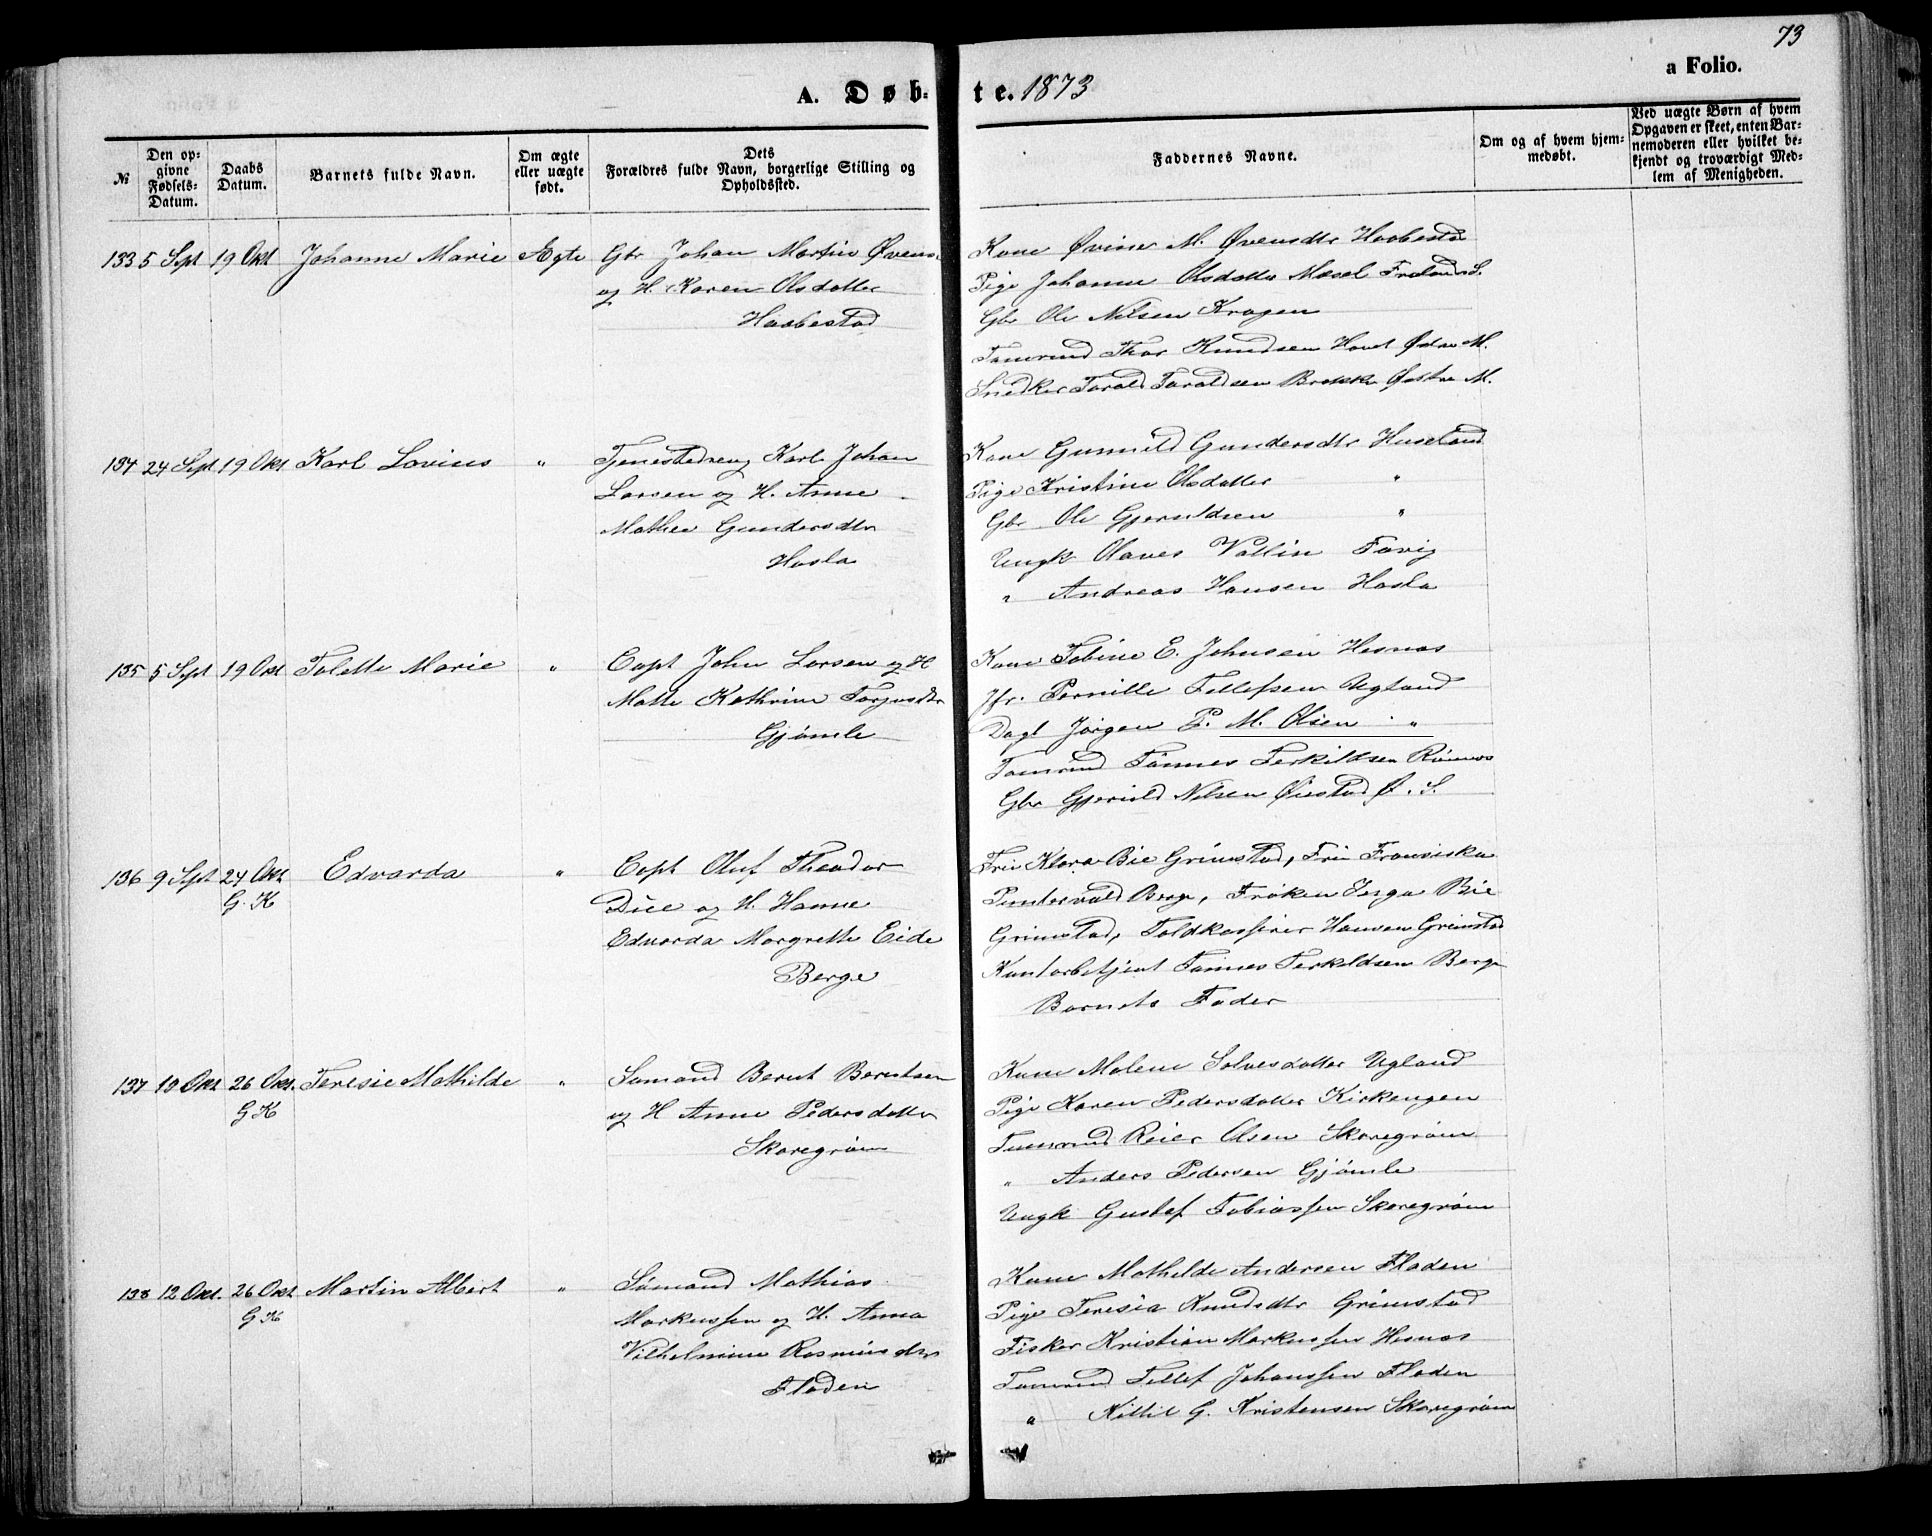 73
a Folio.
A. Døbte. 1873
№
Den opgivne Fødsels-Datum.
Daabs Datum.
Barnets fulde Navn.
Om ægte eller uægte født.
Dets Forældres fulde Navn, borgerlige Stilling og Opholdssted.
Faddernes Navne.
Om og af hvem hjemmedøbt.
Ved uægte Børn af hvem Opgaven er skeet, enten Barnemoderen eller hvilket bekjendt og troværdigt Medlem af Menigheden.
133 5 Sept 19 Okt Johanne Marie Ægte Gbr Johan Martin Øvens.
og H. Karen Olsdatter
Haabestad
Kone Øvine M. Øvensdtr Haabestad
Pige Johanne Olsdatter Mæsel
Gbr Ole Nilsen Kragen
Tømrmd Thor Knudsen Hovet Østre M.
Snedker Tarald Taraldsen Brekke Østre M.
134 24 Sept 19 Okt Karl Lovius " Tjenestedreng Karl Johan
Larsen og H. Anne
Mathea Gundersdtr
Hasla
Kone Gunnild Gundersdtr Huseland
Pige Kristine Olsdatter "
Gbr Ole Gjeruldsen "
Ungk Olaves Vallin Tavig
" Andreas Hansen Hasla
135 5 Sept 19 Okt Tolette Marie " Capt John Larsen og H
Matte Kathrine Torjusdtr
Gjømle
Kone Tobine E. Johnsen Hesnæs
Jfr. Pernille Tellefsen Ugland
Dagl Jørgen P. M. Olsen "
Tømrmd Tønnes Terkildsen Rønnes
Gbr Gjeruld Nilsen Øiestad Ø. S.
136 9 Sept 24 Okt Edvarda " Capt Oluf Theodor
G. K
Due og H. Hanne
Edvarda Margrethe Eide
Berge
Fru Klara Bie Grimstad, Fru Fransiska
Berge, Frøken Inga Bie
Grimstad, Toldkasserer Hansen Grimstad
Kontorbetjent Tønnes Terkeldsen Berge
Barnets Fader
137 10 Okt 26 Okt. Teresie Mathilde " Sømand Bernt Berntsen
G K
og H Anne Pedersdatter
Skaregrøm
Kone Malene Salvesdatter Ugland
Pige Karen Pedersdatter Kirkengen
Tømrmd Reier Olsen Skaregrøm
" Anders Pedersen Gjømle
Ungk Gustaf Tobiassen Skaregrøm
138 12 Okt. 26 Okt Martin Albert " Sømand Mathias
G K
Markussen og H. Anna
Vilhelmine Rasmusdtr
Fladen
Kone Mathilde Andersen Fladen
Pige Teresia Knudsdtr Grimstad
Fisker Kristian Markussen Hesnæs
Tømrmd Tellef Johanssen Fladen
" Kittil G. Kristensen Skaregrøm